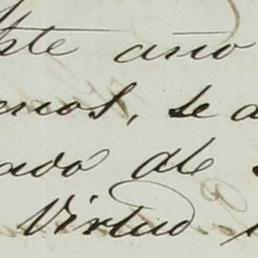 este año
enos, se a
ado de
Virtud